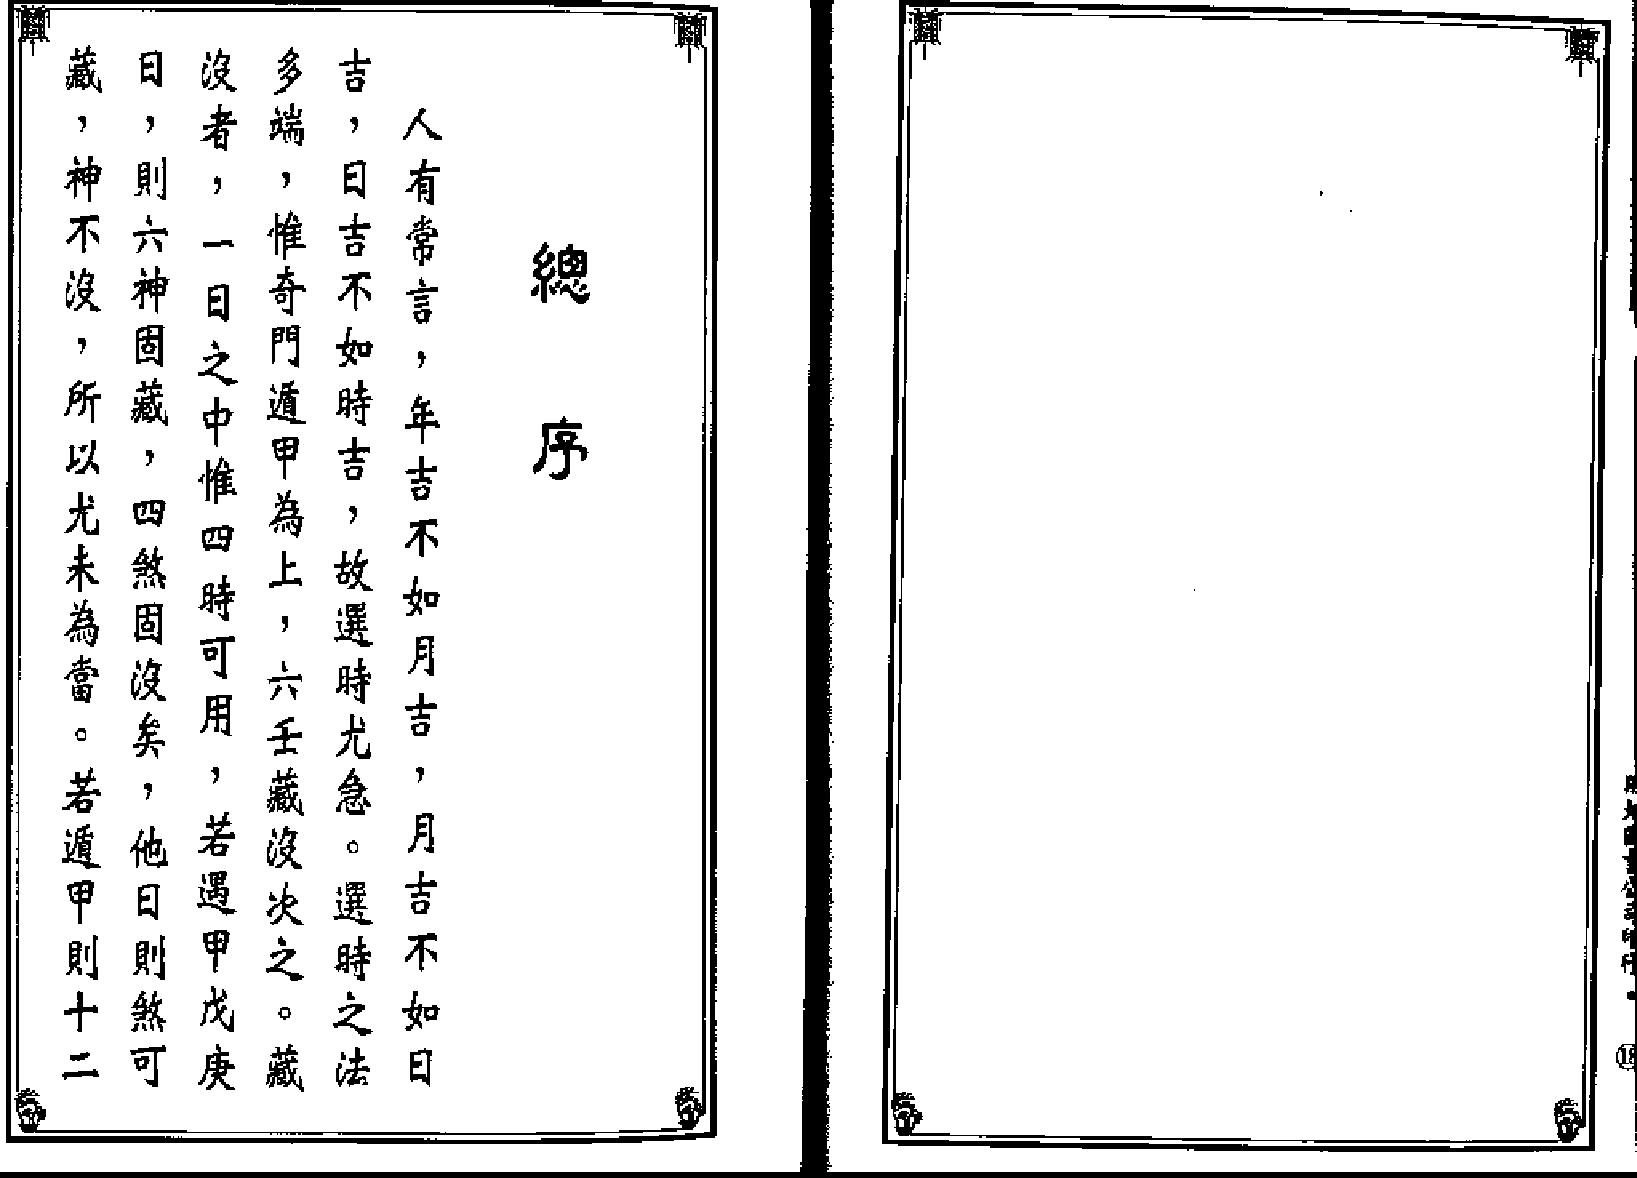 總序
人有常言，年吉不如月吉，月吉不如日
吉，日吉不如時吉，故選時尤急。選時之法
多端，惟奇門遁甲為上，六壬藏沒次之。藏
沒者，一日之中惟四時可用，若遇甲戊庚
日，則六神固藏，四煞固沒矣，他日則煞可
藏，神不沒，所以尤未為當。若遁甲則十二